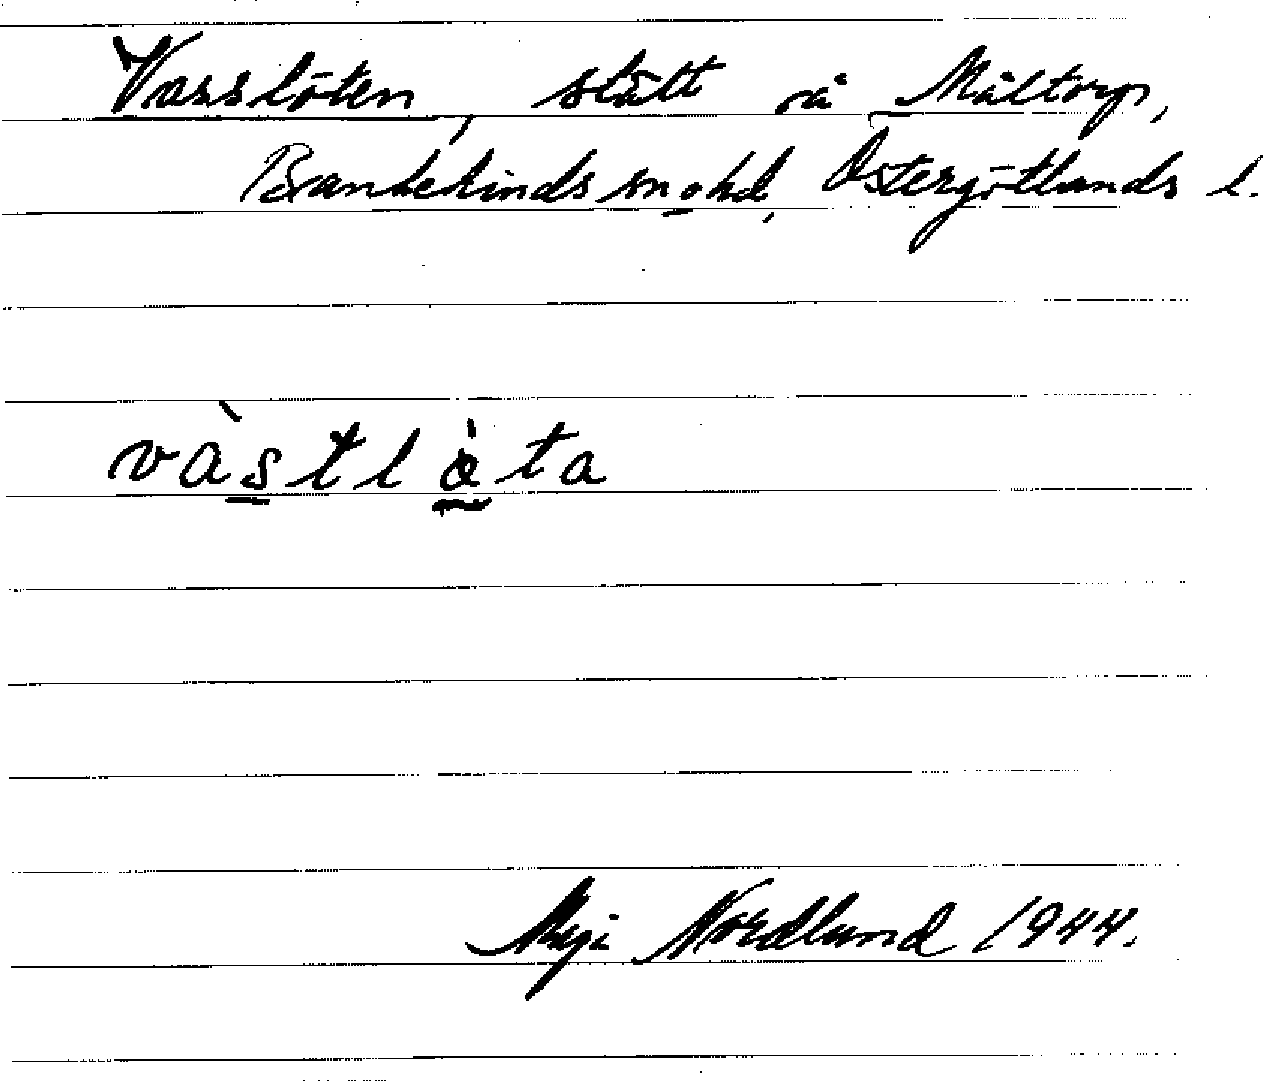 Vasslöten, slått på Måltorp,
Bankekinds sn o hd, Östergötlands l.
vàstlöta
Nordlund 1944.